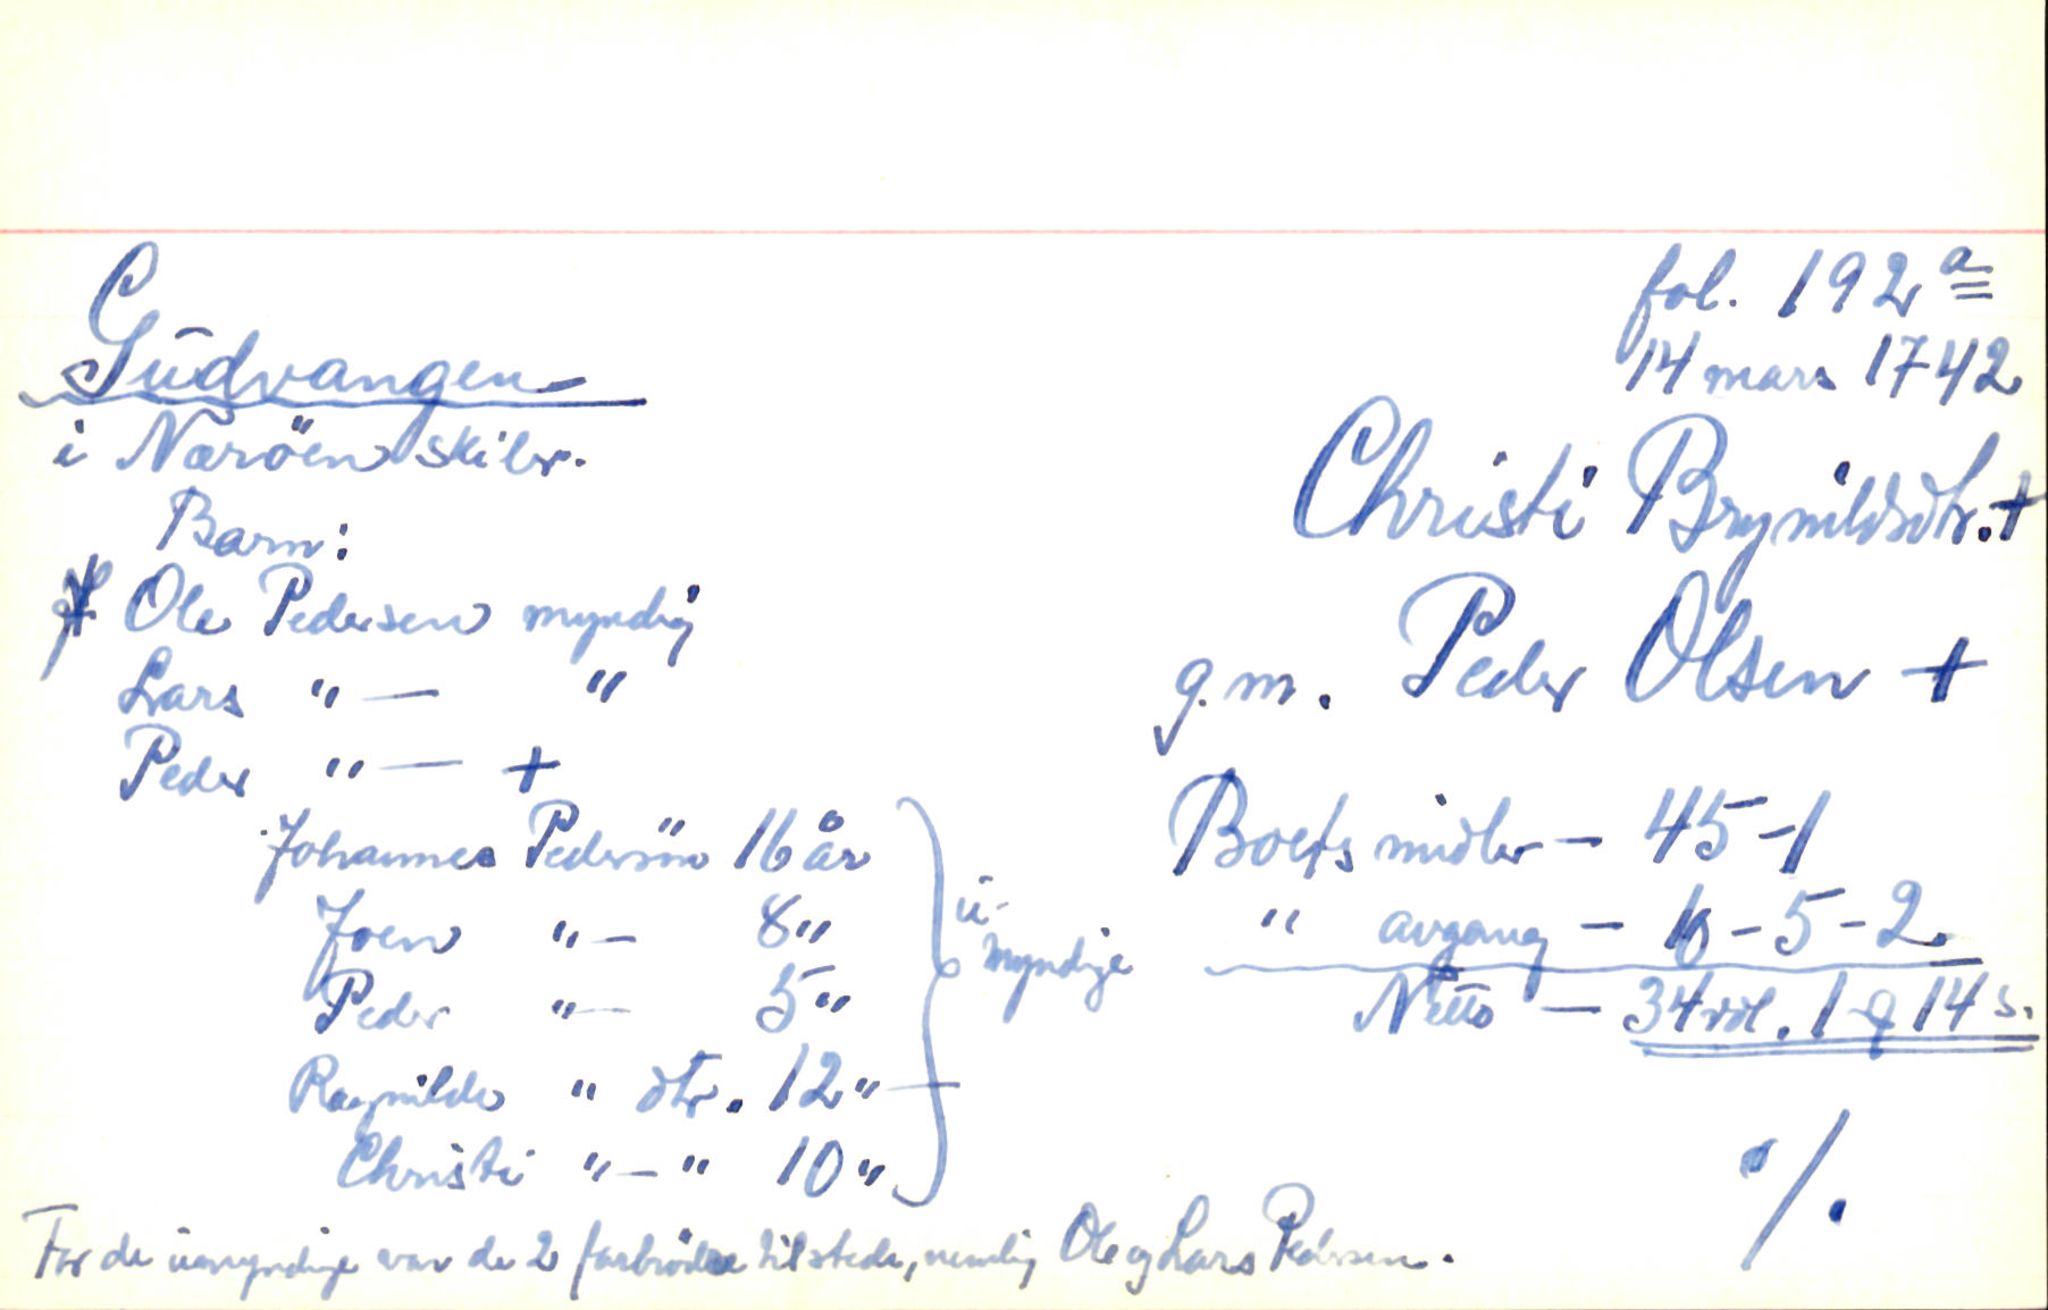 fol. 192 a
14 mars 1742
Gudvangen
i Næröen skibr.
Christi Brynildsdtr. +
g.m. Peder Olsen +
Barn:
Ole Pedersen myndig
Lars " — "
Peder " — +
Johannes Pedersön 16 år
Joen " — 8 "
Peder " — 5 "
Ragnilde " dtr. 12 "
Christi " — " 10 "
u-
myndige
Boets midler — 45 - 1
" avgang — 10 - 5 - 2
Netto — 34 rdl. 1 q 14 s.
For de umyndige var de 2 farbrödre tilstede, nemlig Ole og Lars Pedersen.
·/.